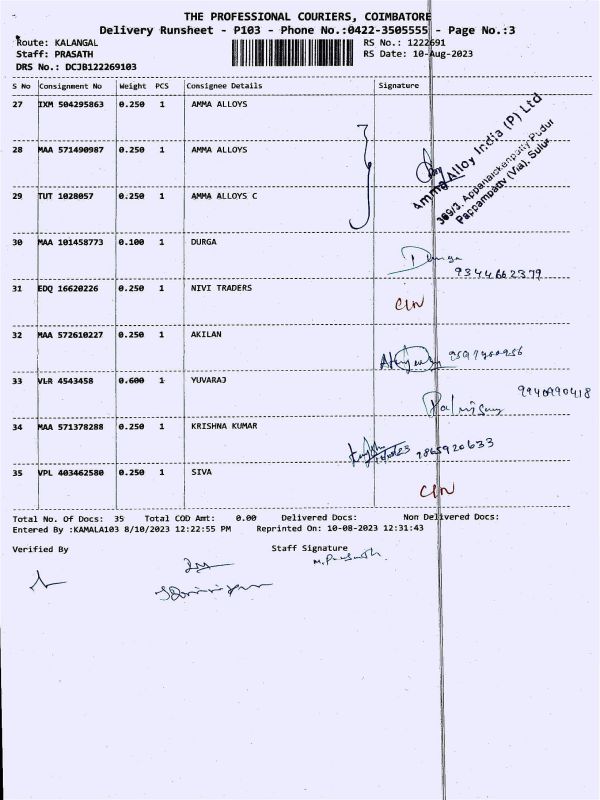 THE PROFESSIONAL COURIERS, COIMBATORE
Delivery Runsheet - P103 - Phone No.:0422-3505555 - Page No.:3
Route: KALANGAL RS No.: 1222691
Staff: PRASATH RS Date: 10-Aug-2023
DRS No.: DCJB122269103
S No Consignment No Weight PCS Consignee Details Signature
27 IXM 504295863 0.250 1 AMMA ALLOYS
28 MAA 571490987 0.250 1 AMMA ALLOYS
Amma Alloy India (P) Ltd
369/3, Appanaickenpatty Pudur
Pappampatty (Via), Sulur
29 TUT 1028057 0.250 1 AMMA ALLOYS C
30 MAA 101458773 0.100 1 DURGA
Durga
9344662379
31 EDQ 16620226 0.250 1 NIVI TRADERS
32 MAA 572610227 0.250 1 AKILAN
33 VLR 4543458 0.600 1 YUVARAJ
9940990418
34 MAA 571378288 0.250 1 KRISHNA KUMAR
7865920633
35 VPL 403462580 0.250 1 SIVA
Total No. Of Docs: 35 Total COD Amt: 0.00 Delivered Docs: Non Delivered Docs:
Entered By :KAMALA103 8/10/2023 12:22:55 PM Reprinted On: 10-08-2023 12:31:43
Verified By Staff Signature